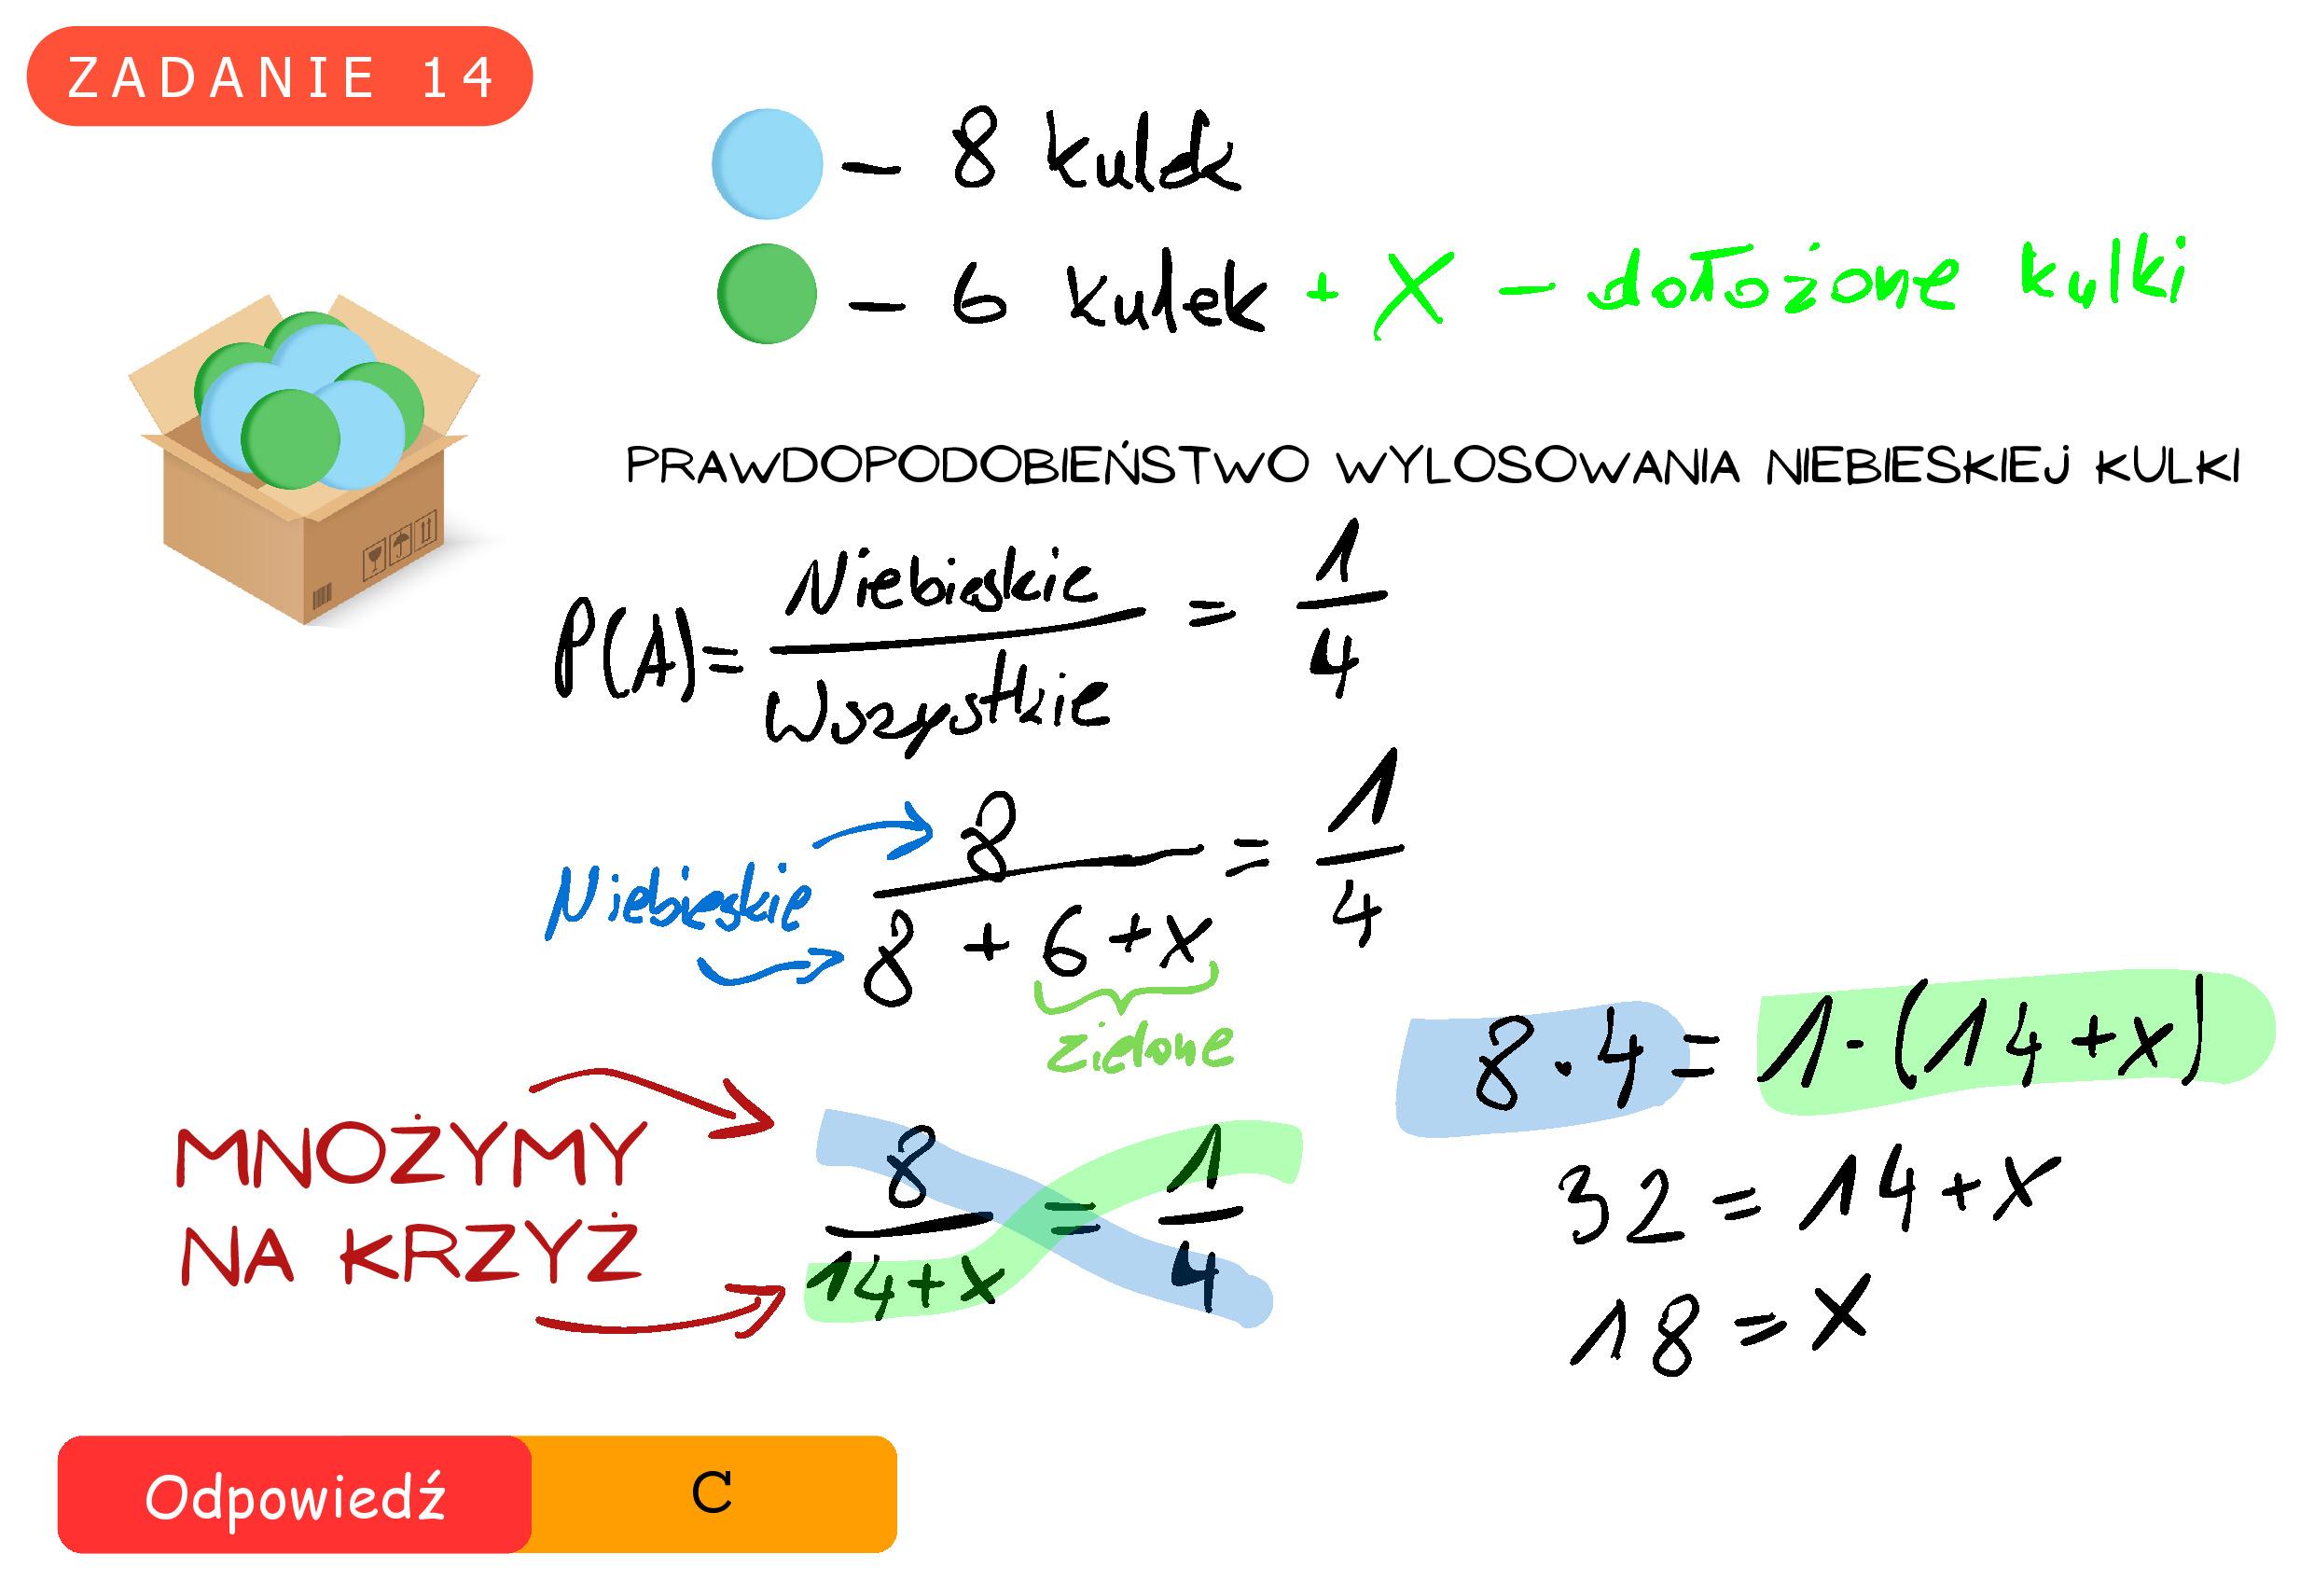 ZADANIE 14
- 8 kulek
- 6 kulek + X - dołożone kulki
PRAWDOPODOBIEŃSTWO WYLOSOWANIA NIEBIESKIEJ KULKI
P(A) = Niebieskie / Wszystkie = 1/4
Niebieskie 8 / 8 + 6 + x = 1/4
zielone
MNOŻYMY
NA KRZYŻ
8 / 14+x = 1/4
8 · 4 = 1 · (14 + x)
32 = 14 + x
18 = x
Odpowiedź C